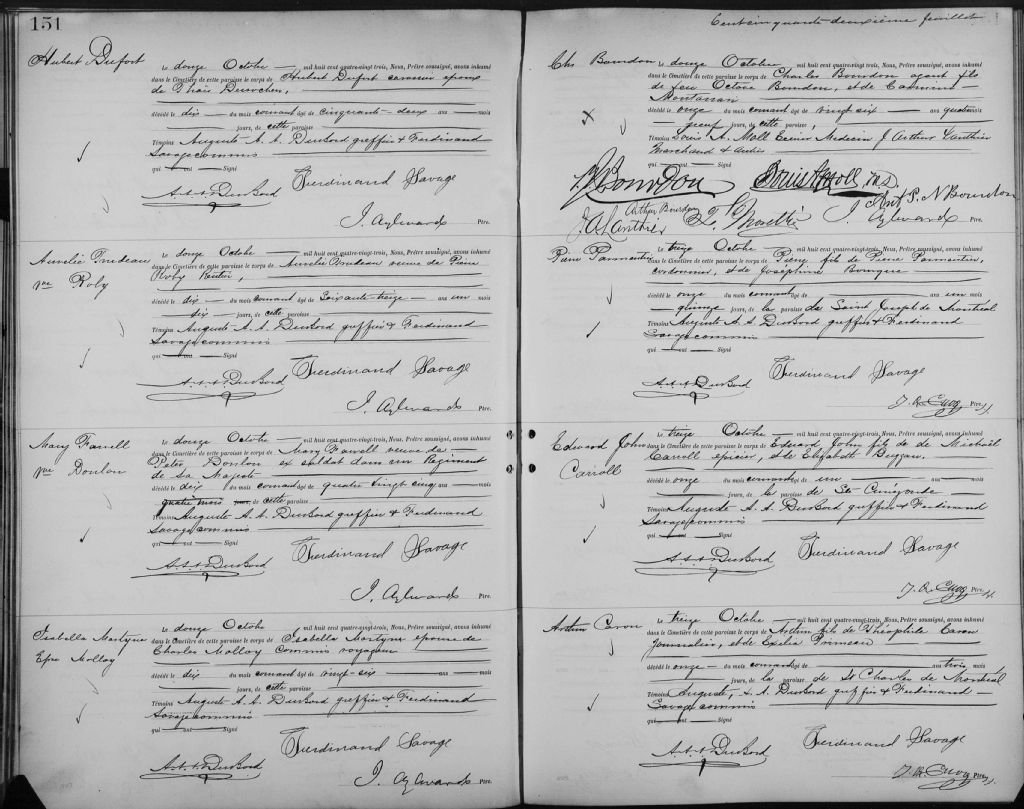 151
Hubert Dufort
Le douze Octobre mil huit cent quatre-vingt-trois, Nous, Prêtre soussigné, avons inhumé
dans le Cimetière de cette paroisse le corps de Hubert Dufort époux
de Thaïs
décédé le dix du mois courant âgé de Cinquante-deux ans mois
jours, de cette paroisse
Témoins Auguste A. A. DuBord greffier & Ferdinand
Savage commis
qui ont Signé
A. A. A. DuBord Ferdinand Savage
J. Aylward Ptre.
Aurélie Trudeau
Vve Roby
Le douze Octobre mil huit cent quatre-vingt-trois, Nous, Prêtre soussigné, avons inhumé
dans le Cimetière de cette paroisse le corps de Aurélie Trudeau veuve de Pierre
Roby Rentier,
décédé le dix du mois courant âgé de Soixante-treize ans un mois
six jours, de cette paroisse
Témoins Auguste A. A. DuBord greffier & Ferdinand
Savage commis
qui ont Signé
A. A. A. DuBord Ferdinand Savage
J. Aylward Ptre.
Mary Farrell
Vve Donlon
Le douze Octobre mil huit cent quatre-vingt-trois, Nous, Prêtre soussigné, avons inhumé
dans le Cimetière de cette paroisse le corps de Mary Farrell veuve de
Peter Donlon ex soldat dans un Régiment
de Sa Majesté
décédé le dix du mois courant âgé de quatre vingt cinq ans mois
quatre mois jours, de cette paroisse
Témoins Auguste A. A. DuBord greffier & Ferdinand
Savage commis
qui ont Signé
A. A. A. DuBord Ferdinand Savage
J. Aylward Ptre.
Isabella Martyne
Epse Molloy
Le douze Octobre mil huit cent quatre-vingt-trois, Nous, Prêtre soussigné, avons inhumé
dans le Cimetière de cette paroisse le corps de Isabella Martyne épouse de
Charles Molloy Commis voyageur
décédé le dix du mois courant âgé de vingt-six ans mois
jours, de cette paroisse
Témoins Auguste A. A. DuBord greffier & Ferdinand
Savage commis
qui ont Signé
A. A. A. DuBord Ferdinand Savage
J. Aylward Ptre.
Cent cinquante deuxième feuillet
Chs Bourdon
Le douze Octobre mil huit cent quatre-vingt-trois, Nous, Prêtre soussigné, avons inhumé
dans le Cimetière de cette paroisse le corps de Charles Bourdon agent fils
de feu Octave Bourdon, et de
décédé le onze du mois courant âgé de vingt six ans quatre mois
jours, de cette paroisse
Témoins Louis A. Moll Ecuier Médecin J Arthur Lanthier
Marchand & autres
qui ont Signé
Bourdon Louis A Moll
Arthur Bourdon P. N Bourdon
J. A Lanthier J. Aylward Ptre.
Pierre Parmentier
Le treize Octobre mil huit cent quatre-vingt-trois, Nous, Prêtre soussigné, avons inhumé
dans le Cimetière de cette paroisse le corps de Pierre fils de Pierre Parmentier,
cordonnier, et de Joséphine Bourque
décédé le onze du mois courant âgé de ans un mois
quinze jours, de la paroisse de Saint Joseph de Montréal
Témoins Auguste A. A. DuBord greffier & Ferdinand
Savage commis
qui ont Signé
A. A. A. DuBord Ferdinand Savage
Ptre
Edward John
Carroll
Le treize Octobre mil huit cent quatre-vingt-trois, Nous, Prêtre soussigné, avons inhumé
dans le Cimetière de cette paroisse le corps de Edward John fils de de Michaël
Carroll épicier, et de Elizabeth Duggan.
décédé le onze du mois courant âgé de un ans mois
jours, de la paroisse de Ste Cunégonde
Témoins Auguste A. A. DuBord greffier & Ferdinand
Savage commis
qui ont Signé
A. A. A. DuBord Ferdinand Savage
Ptre
Arthur Caron
Le treize Octobre mil huit cent quatre-vingt-trois, Nous, Prêtre soussigné, avons inhumé
dans le Cimetière de cette paroisse le corps de Arthur fils de Théophile Caron
Journalier, et de Exilia Primeau
décédé le onze du mois courant âgé de ans trois mois
jours, de la paroisse de St Charles de Montréal
Témoins Auguste, A. A. DuBord greffier & Ferdinand
Savage commis
qui ont Signé
A. A. A. DuBord Ferdinand Savage
Ptre